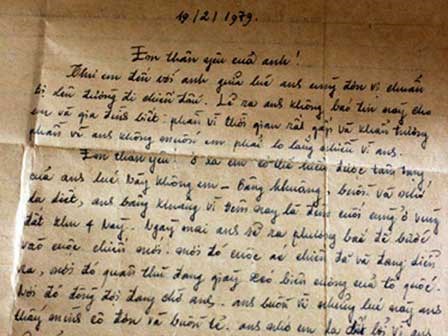 19/2/1979.
Em thân yêu của anh!
Thư em đến với anh giữa lúc anh cùng đơn vị chuẩn
bị lên đường đi chiến đấu. Lẽ ra anh không báo tin này cho
em và gia đình biết: phần vì thời gian rất gấp và khẩn trương
phần vì anh không muốn em phải lo lắng nhiều vì anh.
Em thân yêu! ở xa em có thể hiểu được tâm trạng
của anh lúc này không em - Bâng khuâng, buồn và nhớ
da diết, anh bâng khuâng vì đêm nay là đêm cuối cùng ở vùng
đất khu 4 này. Ngày mai anh sẽ ra phương bắc để bước
vào cuộc chiến mới. nơi đó cuộc chiến đã và đang diễn
ra, nơi đó quân thù đang giày xéo biên cương của tổ quốc.
Nơi đó đồng đội đang chờ anh. anh buồn vì những lúc này anh
thấy mình cô đơn và buồn tẻ. anh nhớ em da diết bởi vì anh